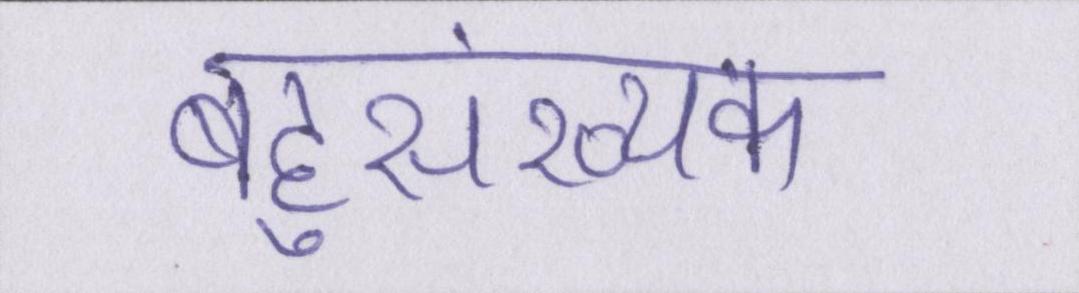 बहुसंख्यक